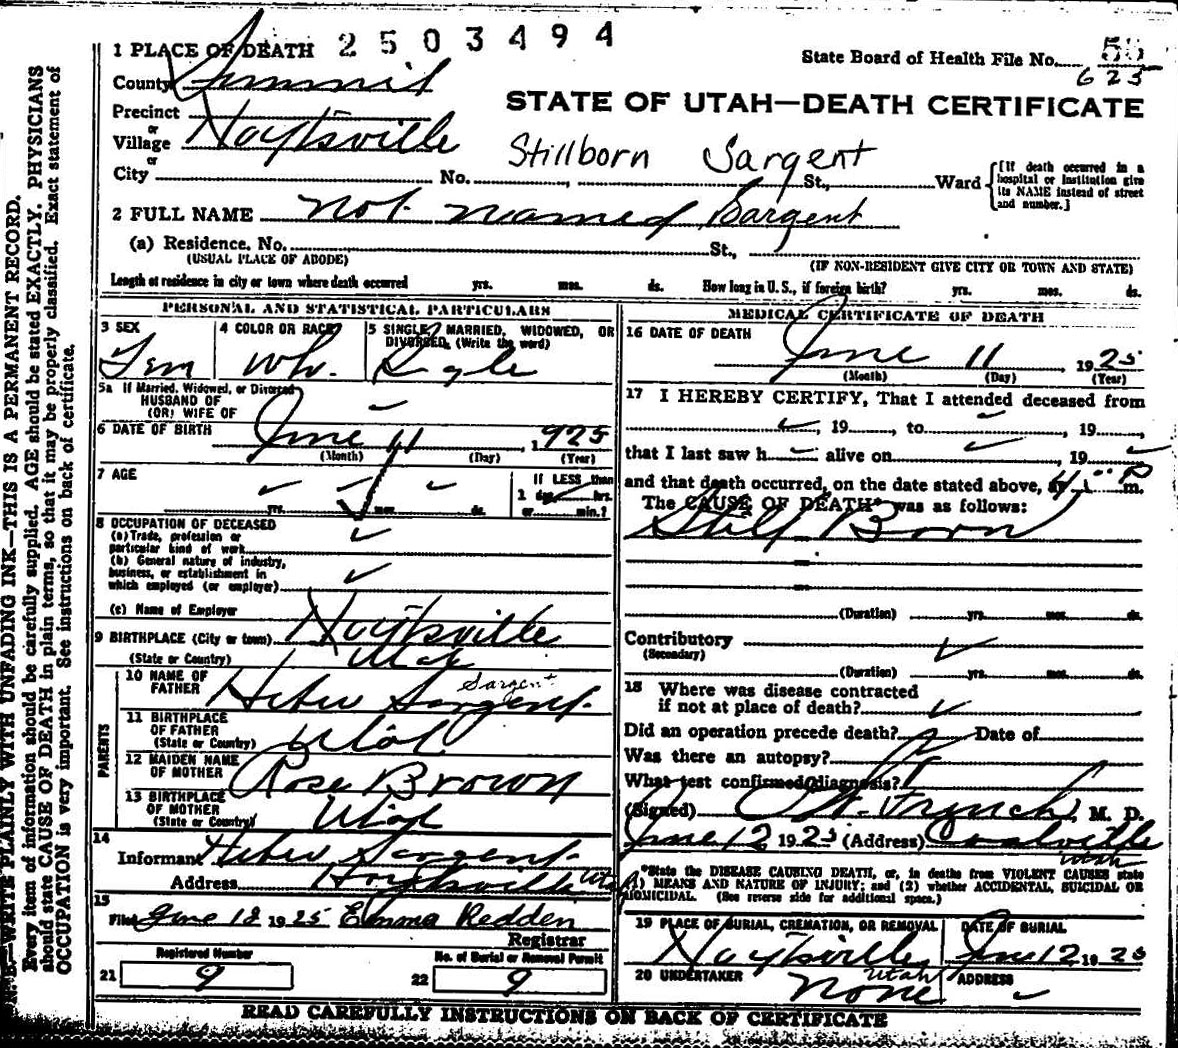 1 PLACE OF DEATH 2503494
State Board of Health File No. 55
625
County Summit
STATE OF UTAH—DEATH CERTIFICATE
Precinct
or
Village Hoytsville
Stillborn Sargent
or
City No. , St., Ward
[If death occurred in a hospital or Institution give its NAME instead of street and number.]
2 FULL NAME Not named Sargent
(a) Residence. No. St.,
(USUAL PLACE OF ABODE) (IF NON-RESIDENT GIVE CITY OR TOWN AND STATE)
Length of residence in city or town where death occurred yrs. mos. ds. How long in U. S., if foreign birth? yrs. mos. ds.
PERSONAL AND STATISTICAL PARTICULARS
3 SEX Fem
4 COLOR OR RACE Wh.
5 SINGLE, MARRIED, WIDOWED, OR DIVORCED, (Write the word) Single
5a If Married, Widowed, or Divorced
HUSBAND OF
(OR) WIFE OF
6 DATE OF BIRTH June 11, 1925
(Month) (Day) (Year)
7 AGE
yrs. mos. ds.
If LESS than
1 day hrs.
or min.?
8 OCCUPATION OF DECEASED
(a) Trade, profession or
particular kind of work
(b) General nature of industry,
business, or establishment in
which employed (or employer)
(c) Name of Employer
9 BIRTHPLACE (City or town) Hoytsville
(State or Country) Utah
PARENTS
10 NAME OF FATHER Heber Sargent
Sargent
11 BIRTHPLACE OF FATHER
(State or Country) Utah
12 MAIDEN NAME OF MOTHER Rose Brown
13 BIRTHPLACE OF MOTHER
(State or Country) Utah
14
Informant Heber Sargent
Address Hoytsville Utah
15
Filed June 12 1925 Emma Redden
Registrar
Registered Number
21 9
No. of Burial or Removal Permit
22 9
MEDICAL CERTIFICATE OF DEATH
16 DATE OF DEATH
June 11, 1925
(Month) (Day) (Year)
17 I HEREBY CERTIFY, That I attended deceased from
, 19 , to , 19 ,
that I last saw h alive on , 19
and that death occurred, on the date stated above, at P m.
The CAUSE OF DEATH* was as follows:
Still Born
(Duration) yrs. mos. ds.
Contributory
(Secondary)
(Duration) yrs. mos. ds.
18 Where was disease contracted
if not at place of death?
Did an operation precede death? Date of
Was there an autopsy?
What test confirmed diagnosis?
(Signed) French, M. D.
June 12 1925 (Address) Coalville
Utah
*State the DISEASE CAUSING DEATH, or, in deaths from VIOLENT CAUSES state
(1) MEANS AND NATURE OF INJURY; and (2) whether ACCIDENTAL, SUICIDAL OR
HOMICIDAL. (See reverse side for additional space.)
19 PLACE OF BURIAL, CREMATION, OR REMOVAL
Hoytsville
Utah
DATE OF BURIAL
June 12 1925
20 UNDERTAKER
None
ADDRESS
READ CAREFULLY INSTRUCTIONS ON BACK OF CERTIFICATE
N. B.—WRITE PLAINLY WITH UNFADING INK—THIS IS A PERMANENT RECORD.
Every item of information should be carefully supplied. AGE should be stated EXACTLY. PHYSICIANS
should state CAUSE OF DEATH in plain terms, so that it may be properly classified. Exact statement of
OCCUPATION is very important. See instructions on back of certificate.